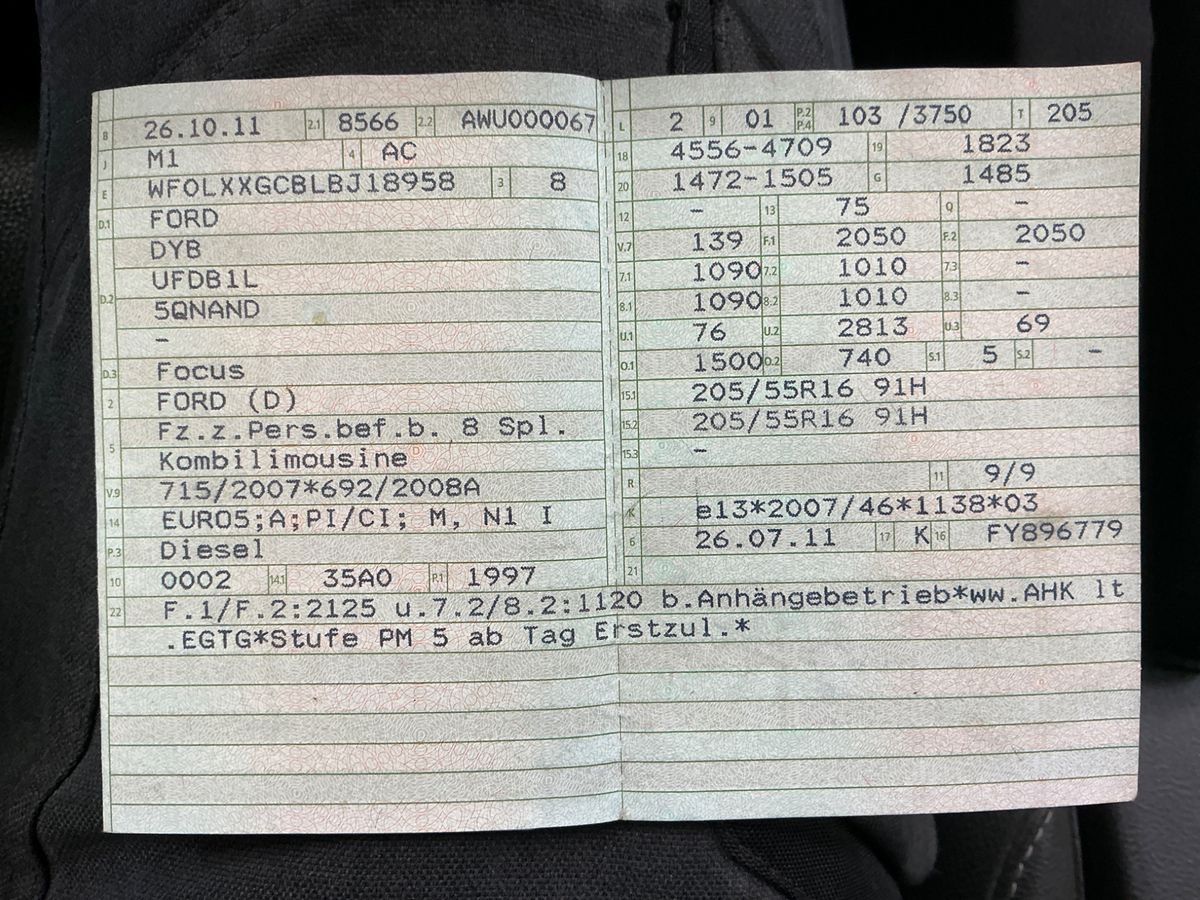 B 26.10.11 2.1 8566 2.2 AWU000067
J M1 4 AC
E WFOLXXGCBLBJ18958 3 8
D.1 FORD
DYB
D.2 UFDB1L
5QNAND
–
D.3 Focus
2 FORD (D)
5 Fz.z.Pers.bef.b. 8 Spl.
Kombilimousine
V.9 715/2007*692/2008A
14 EURO5;A;PI/CI; M, N1 I
P.3 Diesel
10 0002 14.1 35A0 P.1 1997
L 2 9 01 P.2 P.4 103 /3750 T 205
18 4556-4709 19 1823
20 1472-1505 G 1485
12 – 13 75 Q –
V.7 139 F.1 2050 F.2 2050
7.1 1090 7.2 1010 7.3 –
8.1 1090 8.2 1010 8.3 –
U.1 76 U.2 2813 U.3 69
O.1 1500 O.2 740 S.1 5 S.2 –
15.1 205/55R16 91H
15.2 205/55R16 91H
15.3 –
R 11 9/9
K e13*2007/46*1138*03
6 26.07.11 17 K 16 FY896779
21
22 F.1/F.2:2125 u.7.2/8.2:1120 b.Anhängebetrieb*ww.AHK lt
.EGTG*Stufe PM 5 ab Tag Erstzul.*